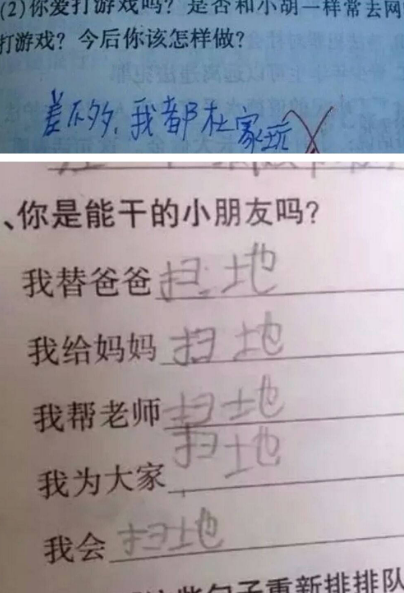 (2)你爱打游戏吗？是否和小胡一样常去网
打游戏？今后你该怎样做？
差不多，我都在家玩
、你是能干的小朋友吗？
我替爸爸扫地
我给妈妈扫地
我帮老师扫地
我为大家扫地
我会扫地
些句子重新排排队